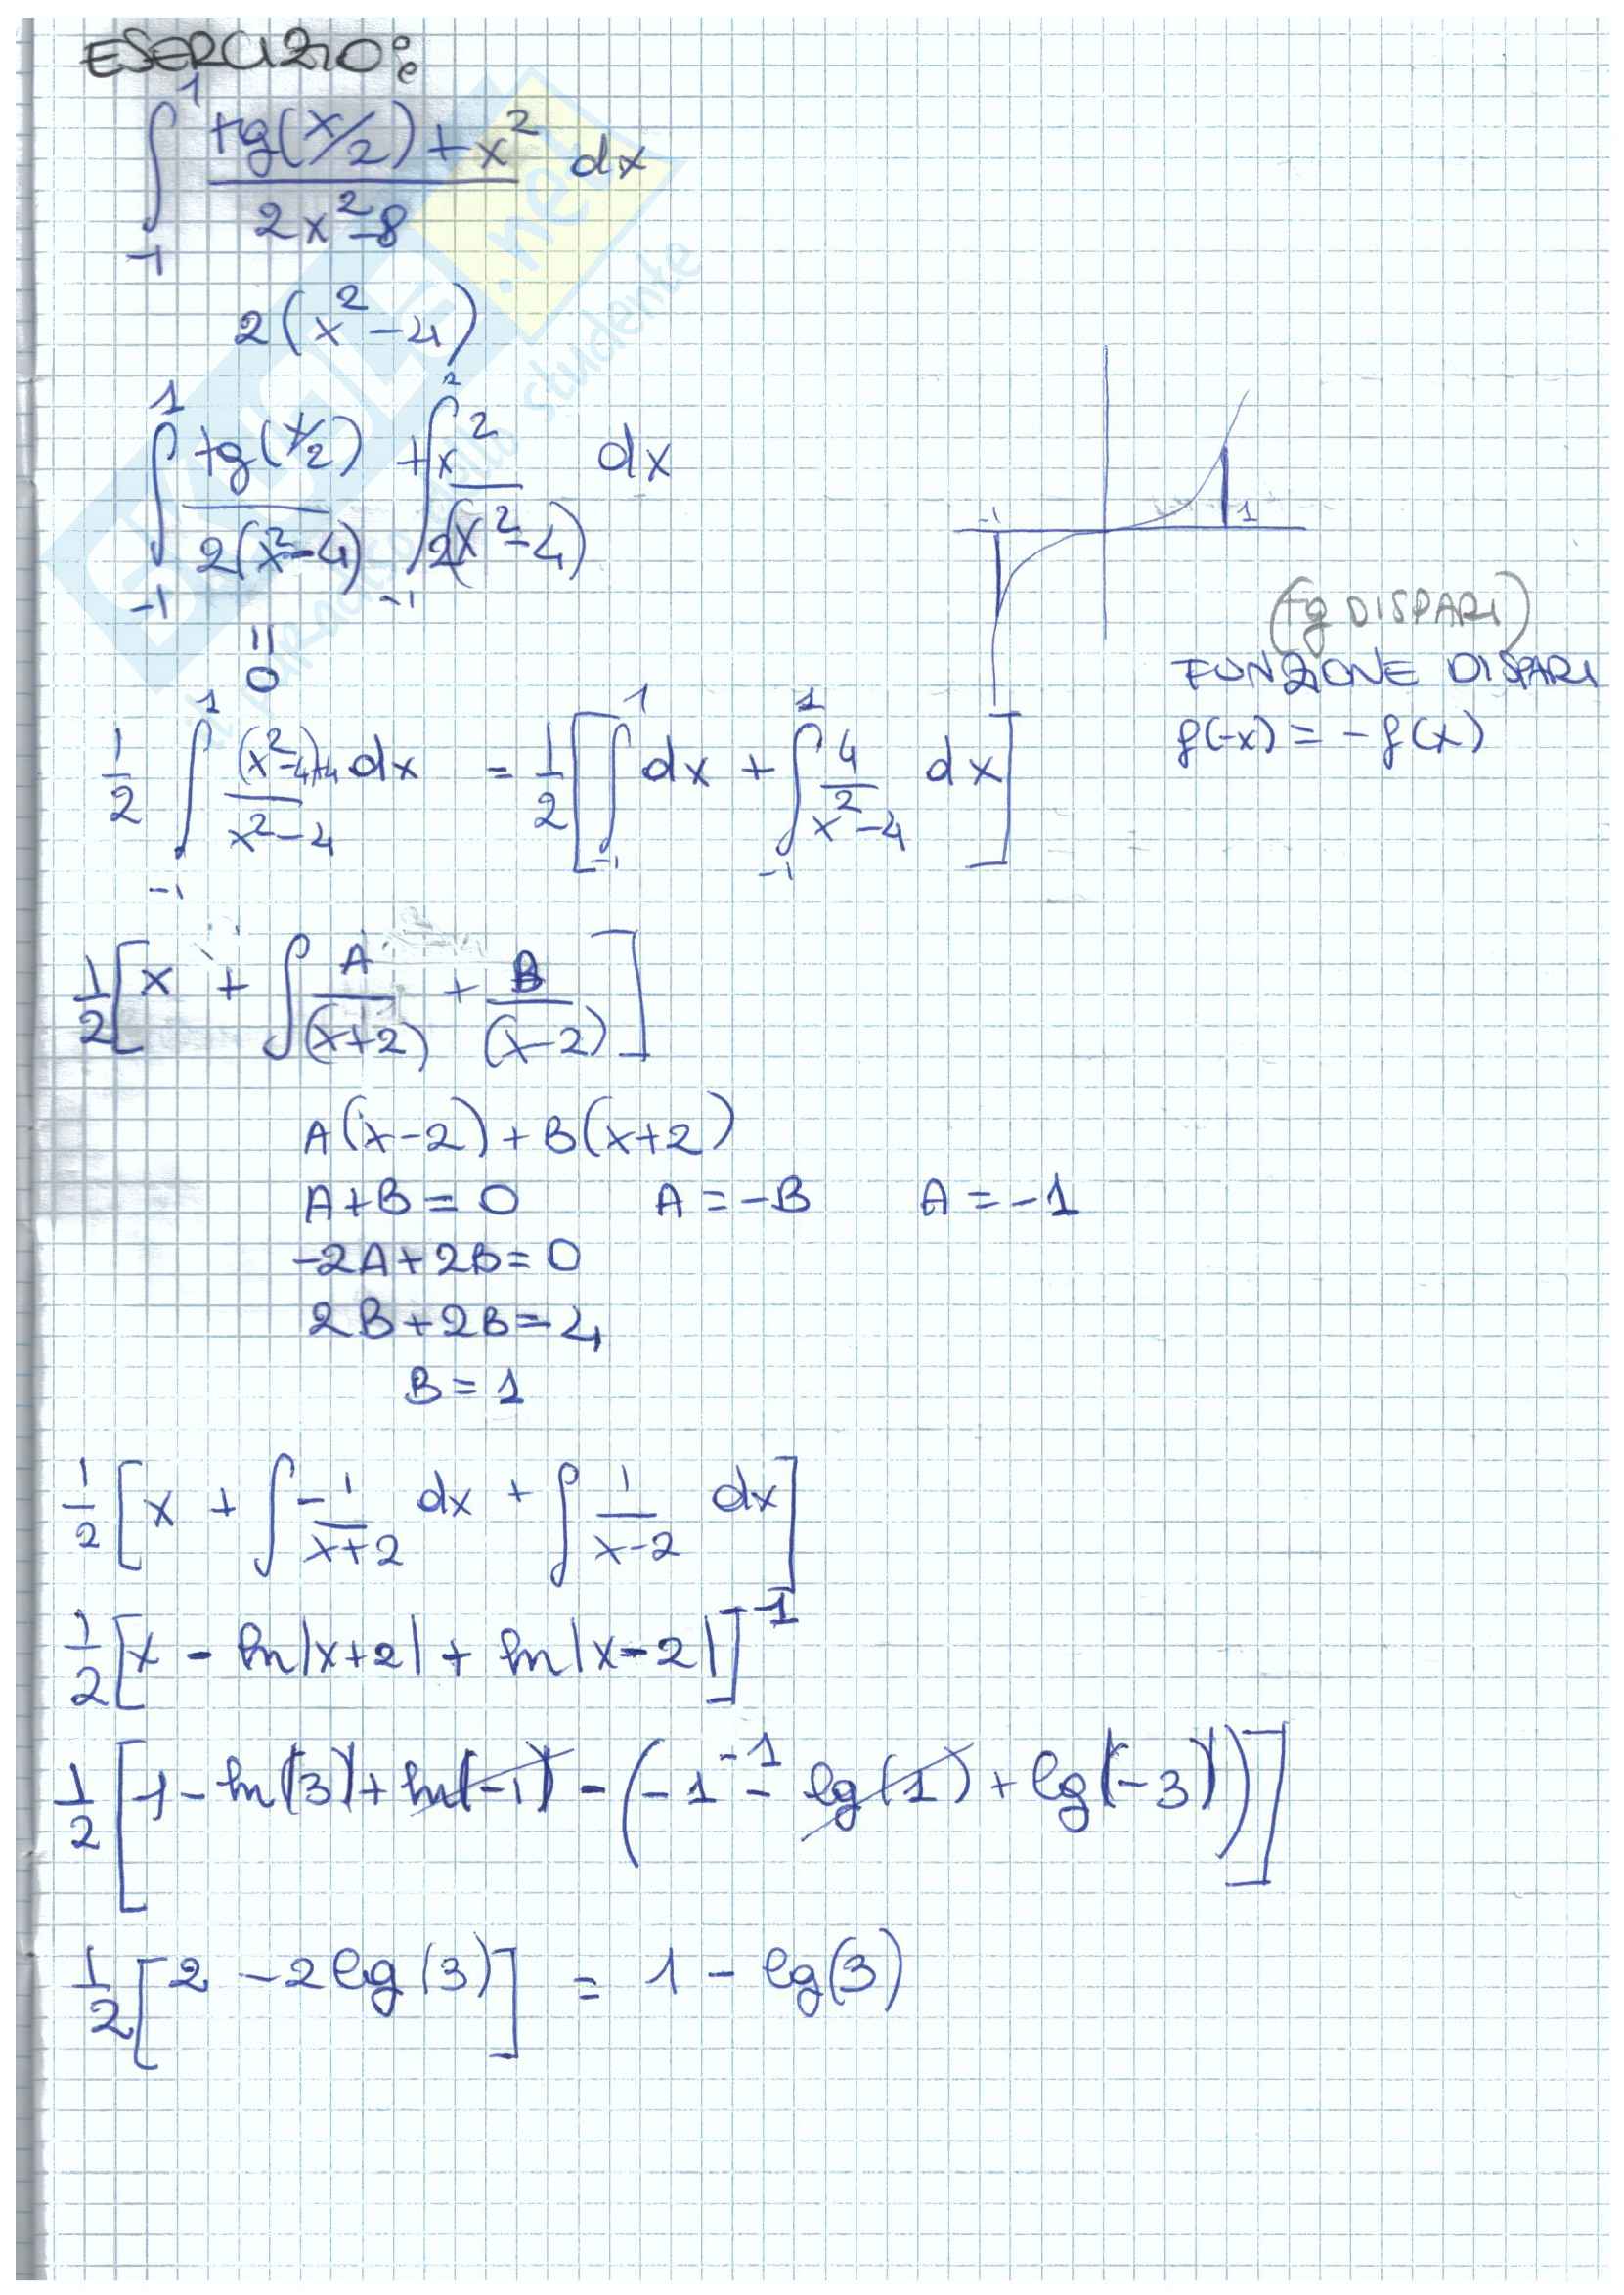 ESERCIZIO:
∫_{-1}^{1} (tg(x/2) + x²)/(2x²-8) dx
2(x²-4)
∫_{-1}^{1} tg(x/2)/(2(x²-4)) + ∫_{-1}^{1} x²/(2(x²-4)) dx
-1 1
= 0
(tg DISPARI)
FUNZIONE DISPARI
f(-x) = -f(x)
1/2 ∫_{-1}^{1} ((x²-4)+4)/(x²-4) dx = 1/2 [∫_{-1}^{1} dx + ∫_{-1}^{1} 4/(x²-4) dx]
1/2 [x + ∫ A/(x+2) + B/(x-2)]
A(x-2) + B(x+2)
A+B = 0 A = -B A = -1
-2A+2B = 0
2B+2B = 4
B = 1
1/2 [x + ∫ -1/(x+2) dx + ∫ 1/(x-2) dx]
1/2 [x - ln|x+2| + ln|x-2|]_{-1}^{1}
1/2 [1 - ln|3| + ln|-1| - (-1 - lg(1) + lg|-3|)]
1/2 [2 - 2lg(3)] = 1 - lg(3)
SKUOLA.net
il paradiso dello studente